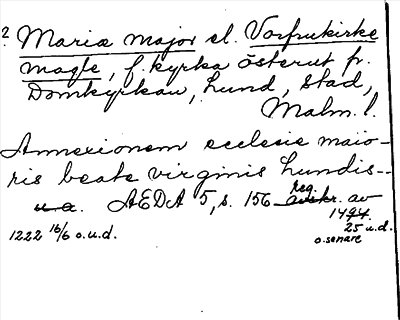 2 Mariæ major el. Vorfrukirke
magle, f. kyrka österut fr.
Domkyrkan, Lund, stad,
Malm. l.
Annexionem ecclesie maio-
ris beate virginis Lundis--
u.a. AEDA 5, s. 156 reg. avskr. av
1494.
1222 16/6 o.u.d. 25 u.d.
o. senare